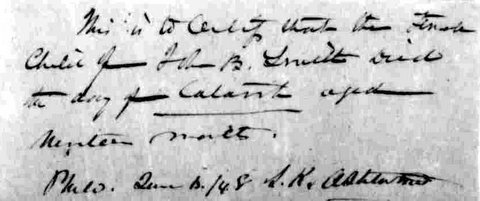 This is to Certify that the Female
Child of John B. Smith died
the day of Catarrh aged
Nineteen months.
Phila. June 13/48 S. K. Ashton MD